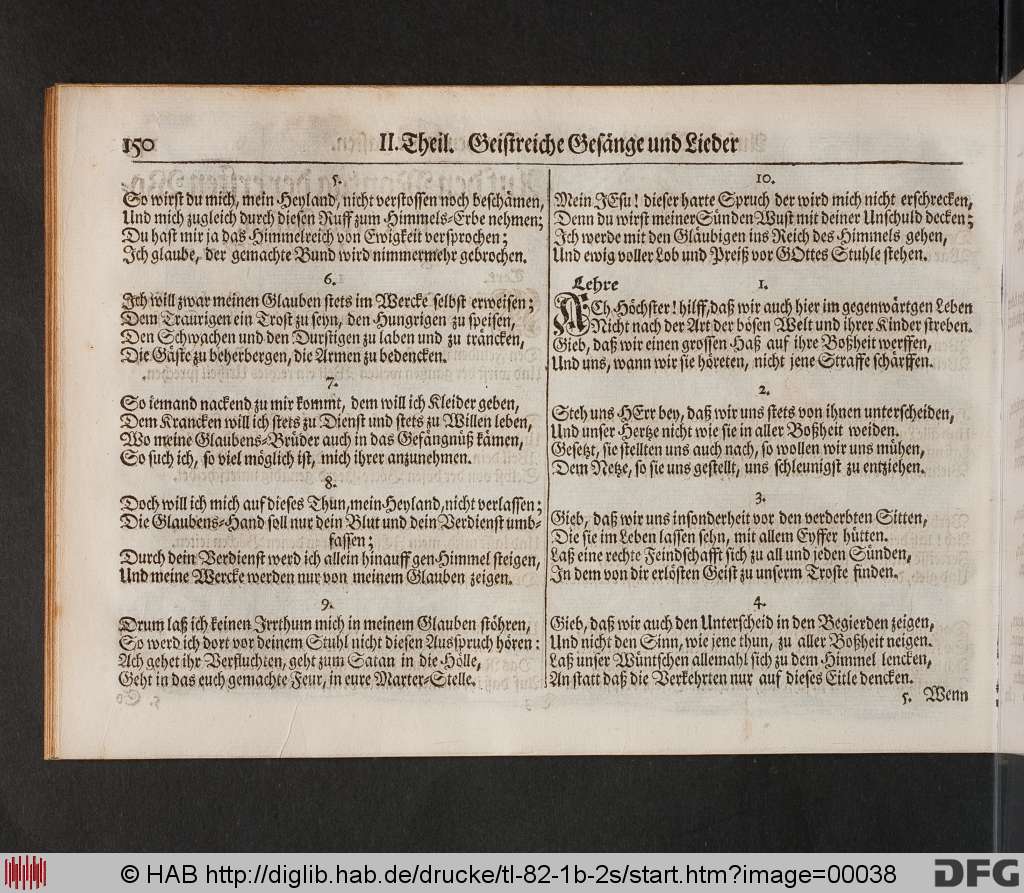 150 II. Theil. Geistreiche Gesänge und Lieder
5.
So wirst du mich, mein Heyland, nicht verstossen noch beschämen,
Und mich zugleich durch diesen Ruff zum Himmels-Erbe nehmen;
Du hast mir ja das Himmelreich von Ewigkeit versprochen;
Ich glaube, der gemachte Bund wird nimmermehr gebrochen.
6.
Ich will zwar meinen Glauben stets im Wercke selbst erweisen;
Dem Traurigen ein Trost zu seyn, den Hungrigen zu speisen,
Den Schwachen und den Durstigen zu laben und zu träncken,
Die Gäste zu beherbergen, die Armen zu bedencken.
7.
So iemand nackend zu mir kommt, dem will ich Kleider geben,
Dem Krancken will ich stets zu Dienst und stets zu Willen leben,
Wo meine Glaubens-Brüder auch in das Gefängnüß kämen,
So such ich, so viel möglich ist, mich ihrer anzunehmen.
8.
Doch will ich mich auf dieses Thun, mein Heyland, nicht verlassen;
Die Glaubens-Hand soll nur dein Blut und dein Verdienst umb-
fassen;
Durch dein Verdienst werd ich allein hinauff gen Himmel steigen,
Und meine Wercke werden nur von meinem Glauben zeigen.
9.
Drum laß ich keinen Irrthum mich in meinem Glauben stöhren,
So werd ich dort vor deinem Stuhl nicht diesen Ausspruch hören:
Ach gehet ihr Verfluchten, geht zum Satan in die Hölle,
Geht in das euch gemachte Feur, in eure Marter-Stelle.
10.
Mein JEsu! dieser harte Spruch der wird mich nicht erschrecken,
Denn du wirst meiner Sünden Wust mit deiner Unschuld decken;
Ich werde mit den Gläubigen ins Reich des Himmels gehen,
Und ewig voller Lob und Preiß vor GOttes Stuhle stehen.
Lehre 1.
ACh Höchster! hilff, daß wir auch hier im gegenwärtgen Leben
Nicht nach der Art der bösen Welt und ihrer Kinder streben.
Gieb, daß wir einen grossen Haß auf ihre Boßheit werffen,
Und uns, wann wir sie höreten, nicht jene Straffe schärffen.
2.
Steh uns HErr bey, daß wir uns stets von ihnen unterscheiden,
Und unser Hertze nicht wie sie in aller Boßheit weiden.
Gesetzt, sie stellten uns auch nach, so wollen wir uns mühen,
Dem Netze, so sie uns gestellt, uns schleunigst zu entziehen.
3.
Gieb, daß wir uns insonderheit vor den verderbten Sitten,
Die sie im Leben lassen sehn, mit allem Eyffer hütten.
Laß eine rechte Feindschafft sich zu all und jeden Sünden,
In dem von dir erlösten Geist zu unserm Troste finden.
4.
Gieb, daß wir auch den Unterscheid in den Begierden zeigen,
Und nicht den Sinn, wie jene thun, zu aller Boßheit neigen.
Laß unser Wüntschen allemahl sich zu dem Himmel lencken,
An statt daß die Verkehrten nur auf dieses Eitle dencken.
5. Wenn
© HAB http://diglib.hab.de/drucke/tl-82-1b-2s/start.htm?image=00038
DFG